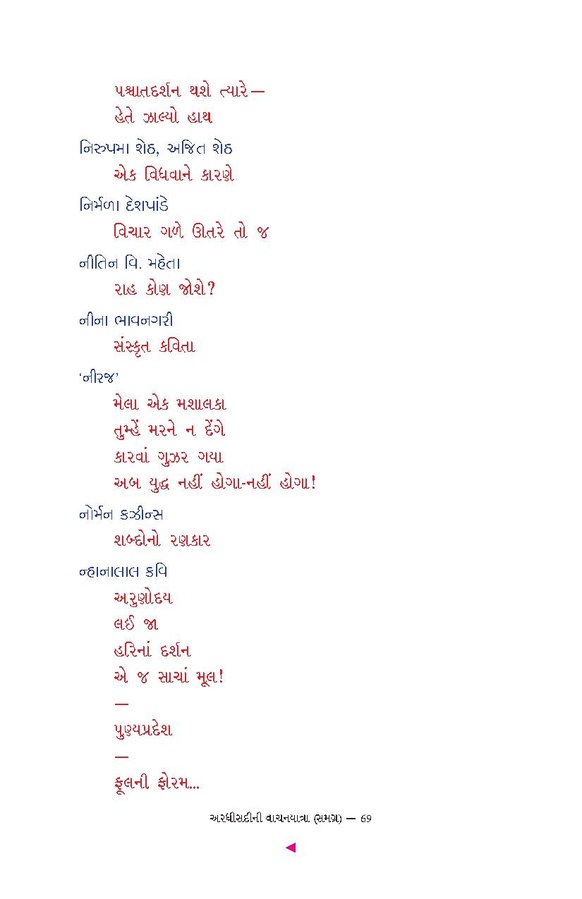 પશ્ચાતદર્શન થશે ત્યારે—
હેતે ઝાલ્યો હાથ
નિરુપમા શેઠ, અજિત શેઠ
એક વિધવાને કારણે
નિર્મળા દેશપાંડે
વિચાર ગળે ઊતરે તો જ
નીતિન વિ. મહેતા
રાહ કોણ જોશે?
નીના ભાવનગરી
સંસ્કૃત કવિતા
‘નીરજ’
મેલા એક મશાલકા
તુમ્હેં મરને ન દેંગે
કારવાં ગુઝર ગયા
અબ યુદ્ધ નહીં હોગા-નહીં હોગા!
નોર્મન કઝીન્સ
શબ્દોનો રણકાર
ન્હાનાલાલ કવિ
અરુણોદય
લઈ જા
હરિનાં દર્શન
એ જ સાચાં મૂલ!
—
પુણ્યપ્રદેશ
—
ફૂલની ફોરમ...
અરધીસદીની વાચનયાત્રા (સમગ્ર) — 69